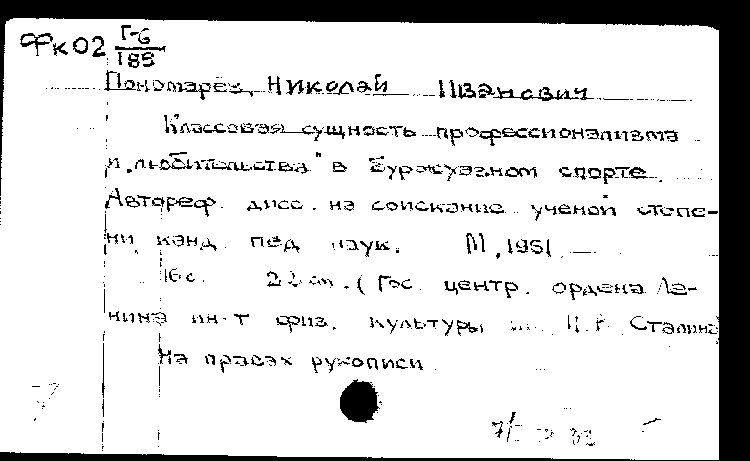 Фк02 Г-6
189
Пономарев, Николай Иванович
Классовая сущность профессионализма
и „любительства" в буржуазном спорте.
Автореф. дисс. на соискание ученой степе-
ни канд. пед. наук. М., 1951
16 с. 22 см. (Гос. центр. ордена Ле-
нина ин-т физ. культуры им. И.В. Сталина
На правах рукописи